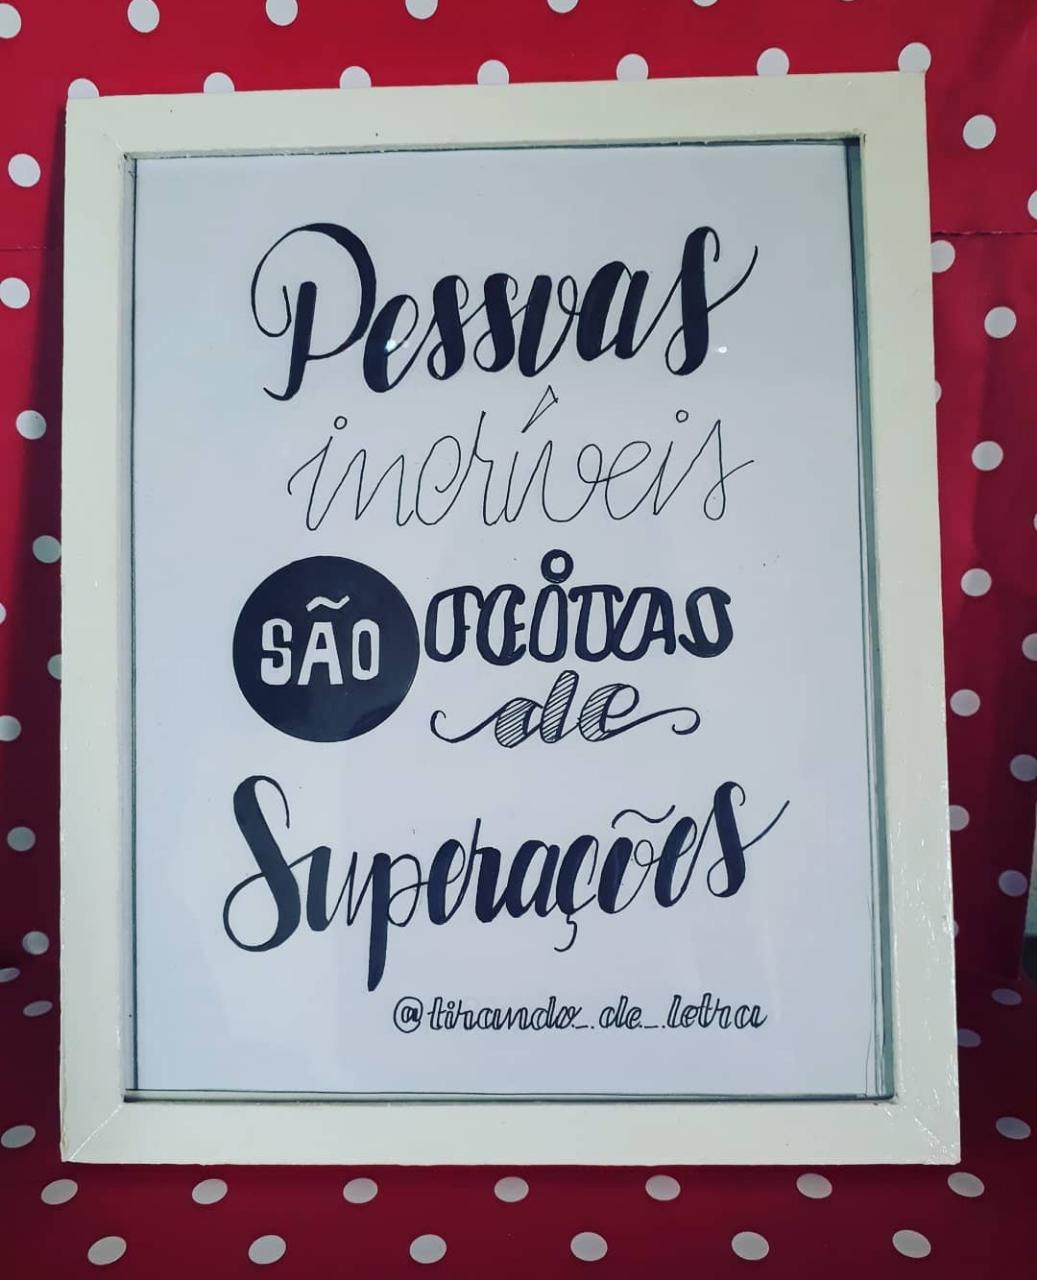 Pessoas
incríveis
SÃO FEITAS
de
Superações
@tirando_de_letra